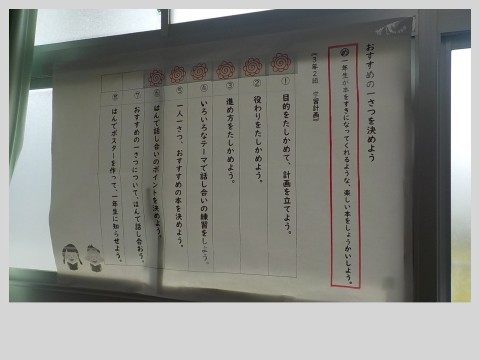 おすすめの一さつを決めよう
め 一年生が本をすきになってくれるような、楽しい本をしょうかいしよう。
(3年2組 学習計画)
① 目的をたしかめて、計画を立てよう。
② 役わりをたしかめよう。
③ 進め方をたしかめよう。
④ いろいろなテーマで話し合いの練習をしよう。
⑤ 一人一さつ、おすすめの本を決めよう。
⑥ はんで話し合いのポイントを決めよう。
⑦ おすすめの一さつについて、はんで話し合おう。
⑧ はんでポスターを作って、一年生に知らせよう。